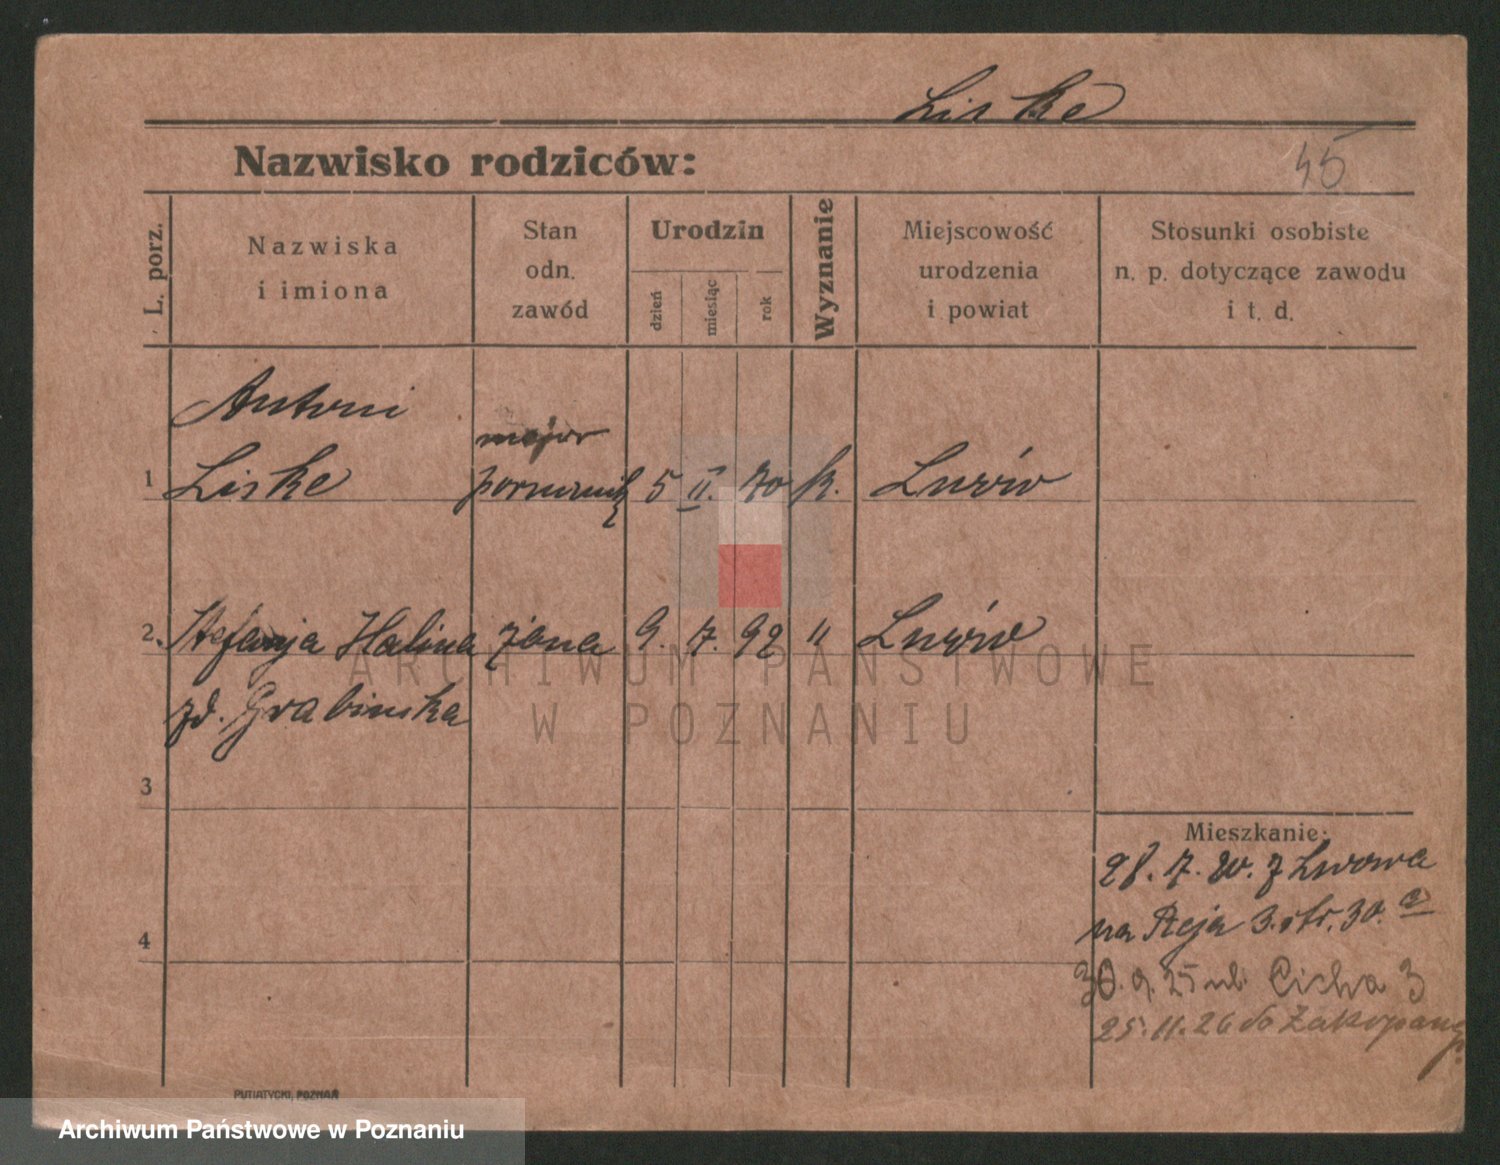 Liske
Nazwisko rodziców:
45
L. porz.
Nazwiska
i imiona
Stan
odn.
zawód
Urodzin
dzień
miesiąc
rok
Wyznanie
Miejscowość
urodzenia
i powiat
Stosunki osobiste
n. p. dotyczące zawodu
i t. d.
Antoni
major
1 Liske 5 II. 70 k. Lwów
2. Stefanja Halina żona 9. 7. 92 " Lwów
zd. Grabinska
3
Mieszkanie:
28. 7. 20. z Lwowa
na Reja 3. str. 30. a
4
30. 9. 25 ul. Cicha 3
25. 11. 26 do Zakopanego
PUTIATYCKI, POZNAŃ
ARCHIWUM PAŃSTWOWE
W POZNANIU
Archiwum Państwowe w Poznaniu